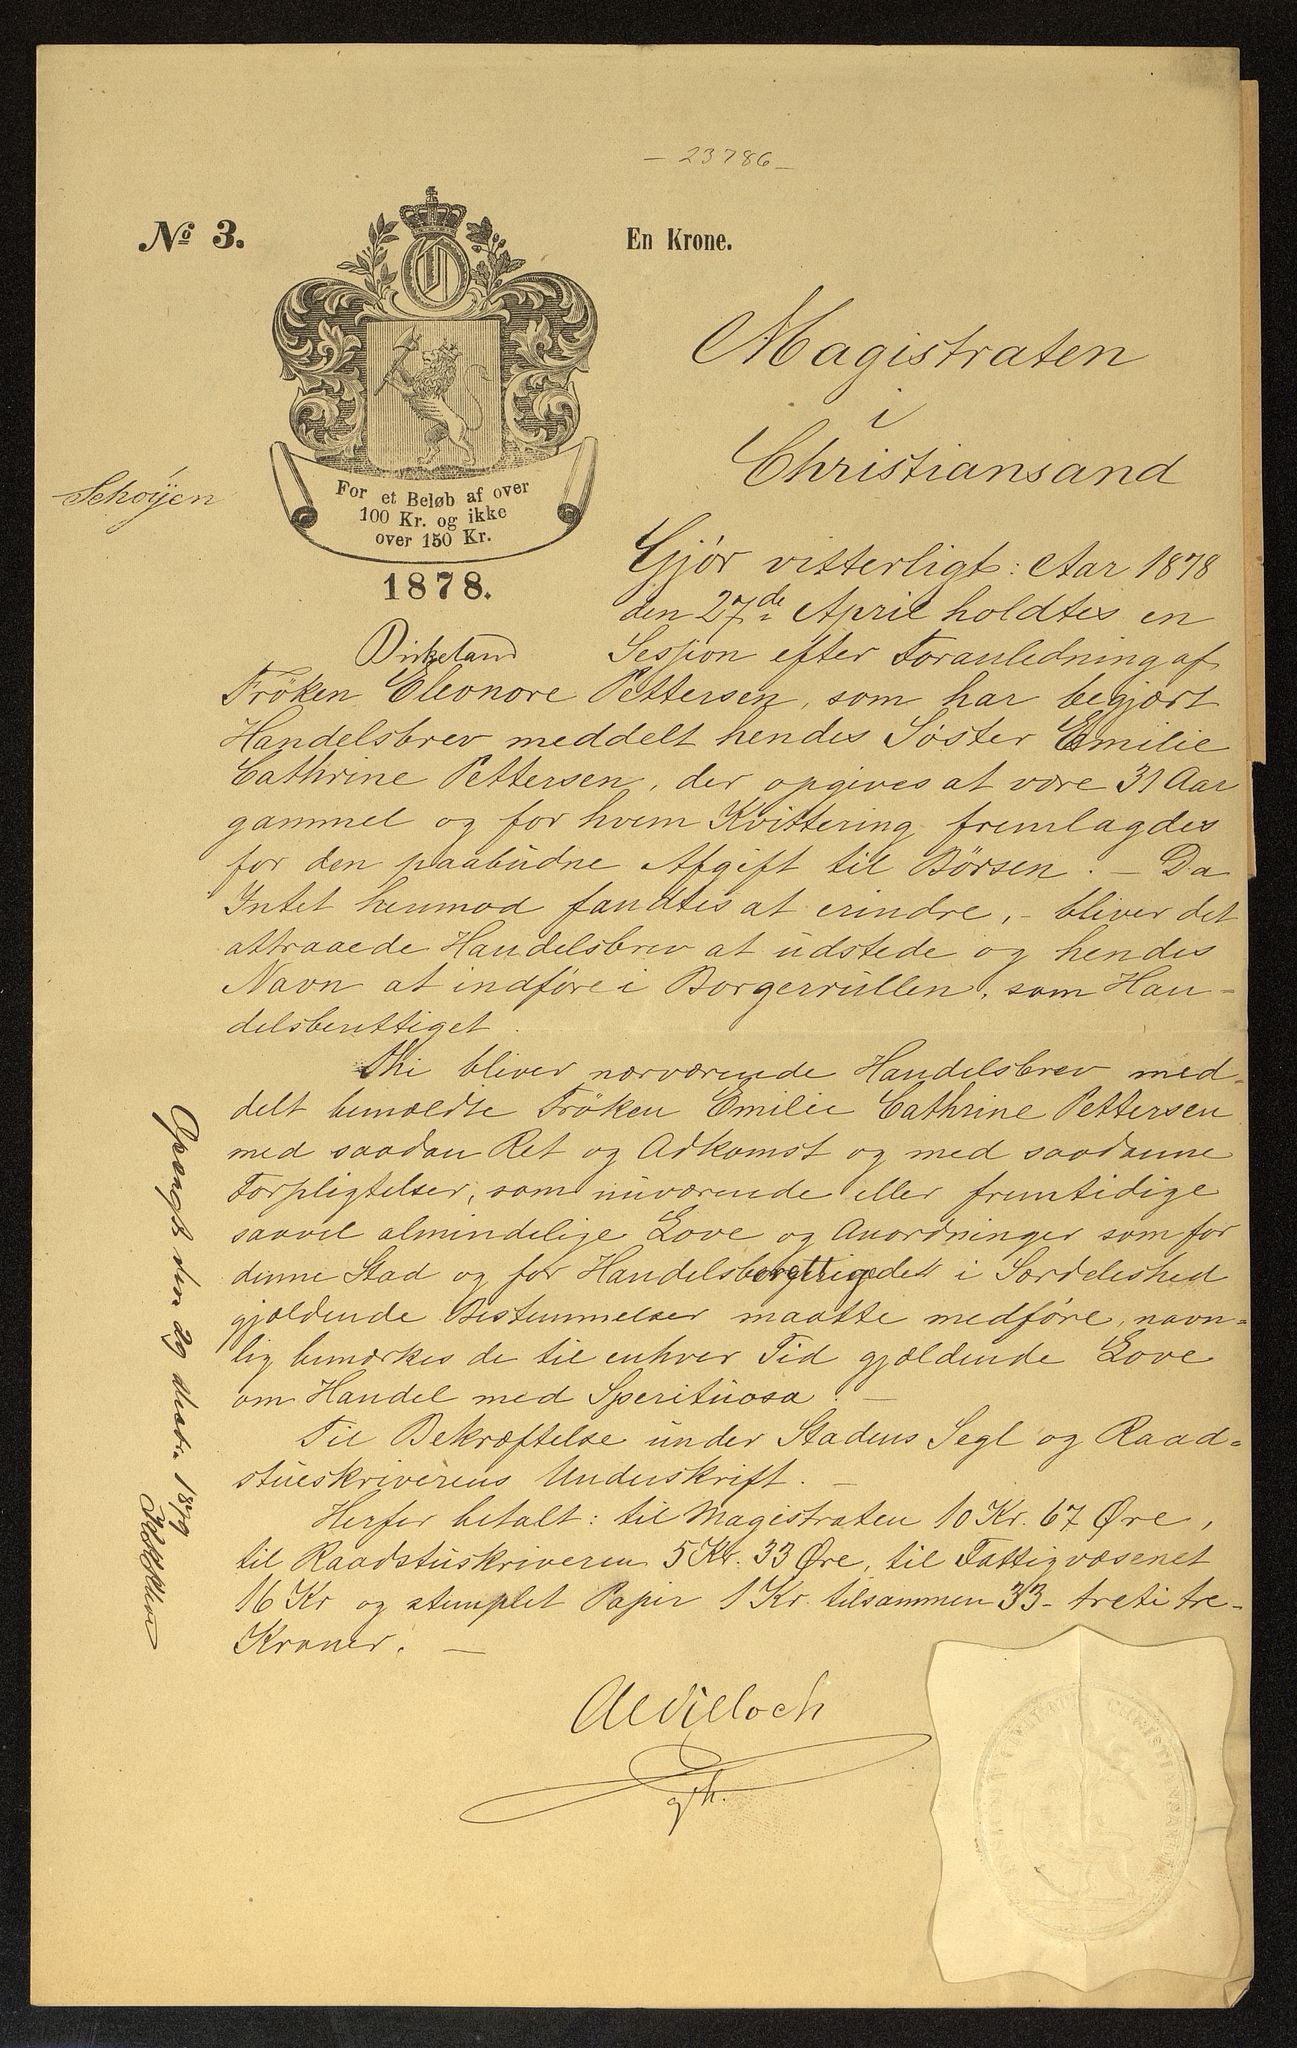 - 23786 -
No 3.
En Krone.
Magistraten
i
Christiansand
Schøyen
For et Beløb af over
100 Kr. og ikke
over 150 Kr.
1878.
Gjör vitterligt: Aar 1878
den 27de April holdtes en
Birkeland Session efter Foranledning af
Fröken Eleonore Pettersen, som har begjært
Handelsbrev meddelt hendes Söster Emilie
Cathrine Pettersen, der opgives at være 31 Aar
gammel og for hvem Kvittering fremlagdes
for den paabudne Afgift til Börsen. — Da
Intet herimod fandtes at erindre, - bliver det
attraaede Handelsbrev at udstede og hendes
Navn at indföre i Borgerrullen, som Han-
delsberettiget.
Thi bliver nærværende Handelsbrev med-
delt bemældte Fröken Emilie Cathrine Pettersen
med saadan Ret og Adkomst og med saadanne
Forpligtelser, som nuværende eller fremtidige
saavel almindelige Love og Anordninger som for
denne Stad og for Handelsberettigede i Særdeleshed
gjældende Bestemmelser maatte medföre, navn-
lig bemærkes de til enhver Tid gjældende Love
om Handel med Sperituosa. —
Til Bekræftelse under Stadens Segl og Raad-
stueskriverens Underskrift. —
Herfor betalt: til Magistraten 10 Kr. 67 Øre,
til Raadstuskriveren 5 Kr. 33 Øre, til Fattigvæsenet
16 Kr og stemplet Papir 1 Kr. tilsammen 33 - treti tre-
Kroner. —
Opsagt den 29 1879